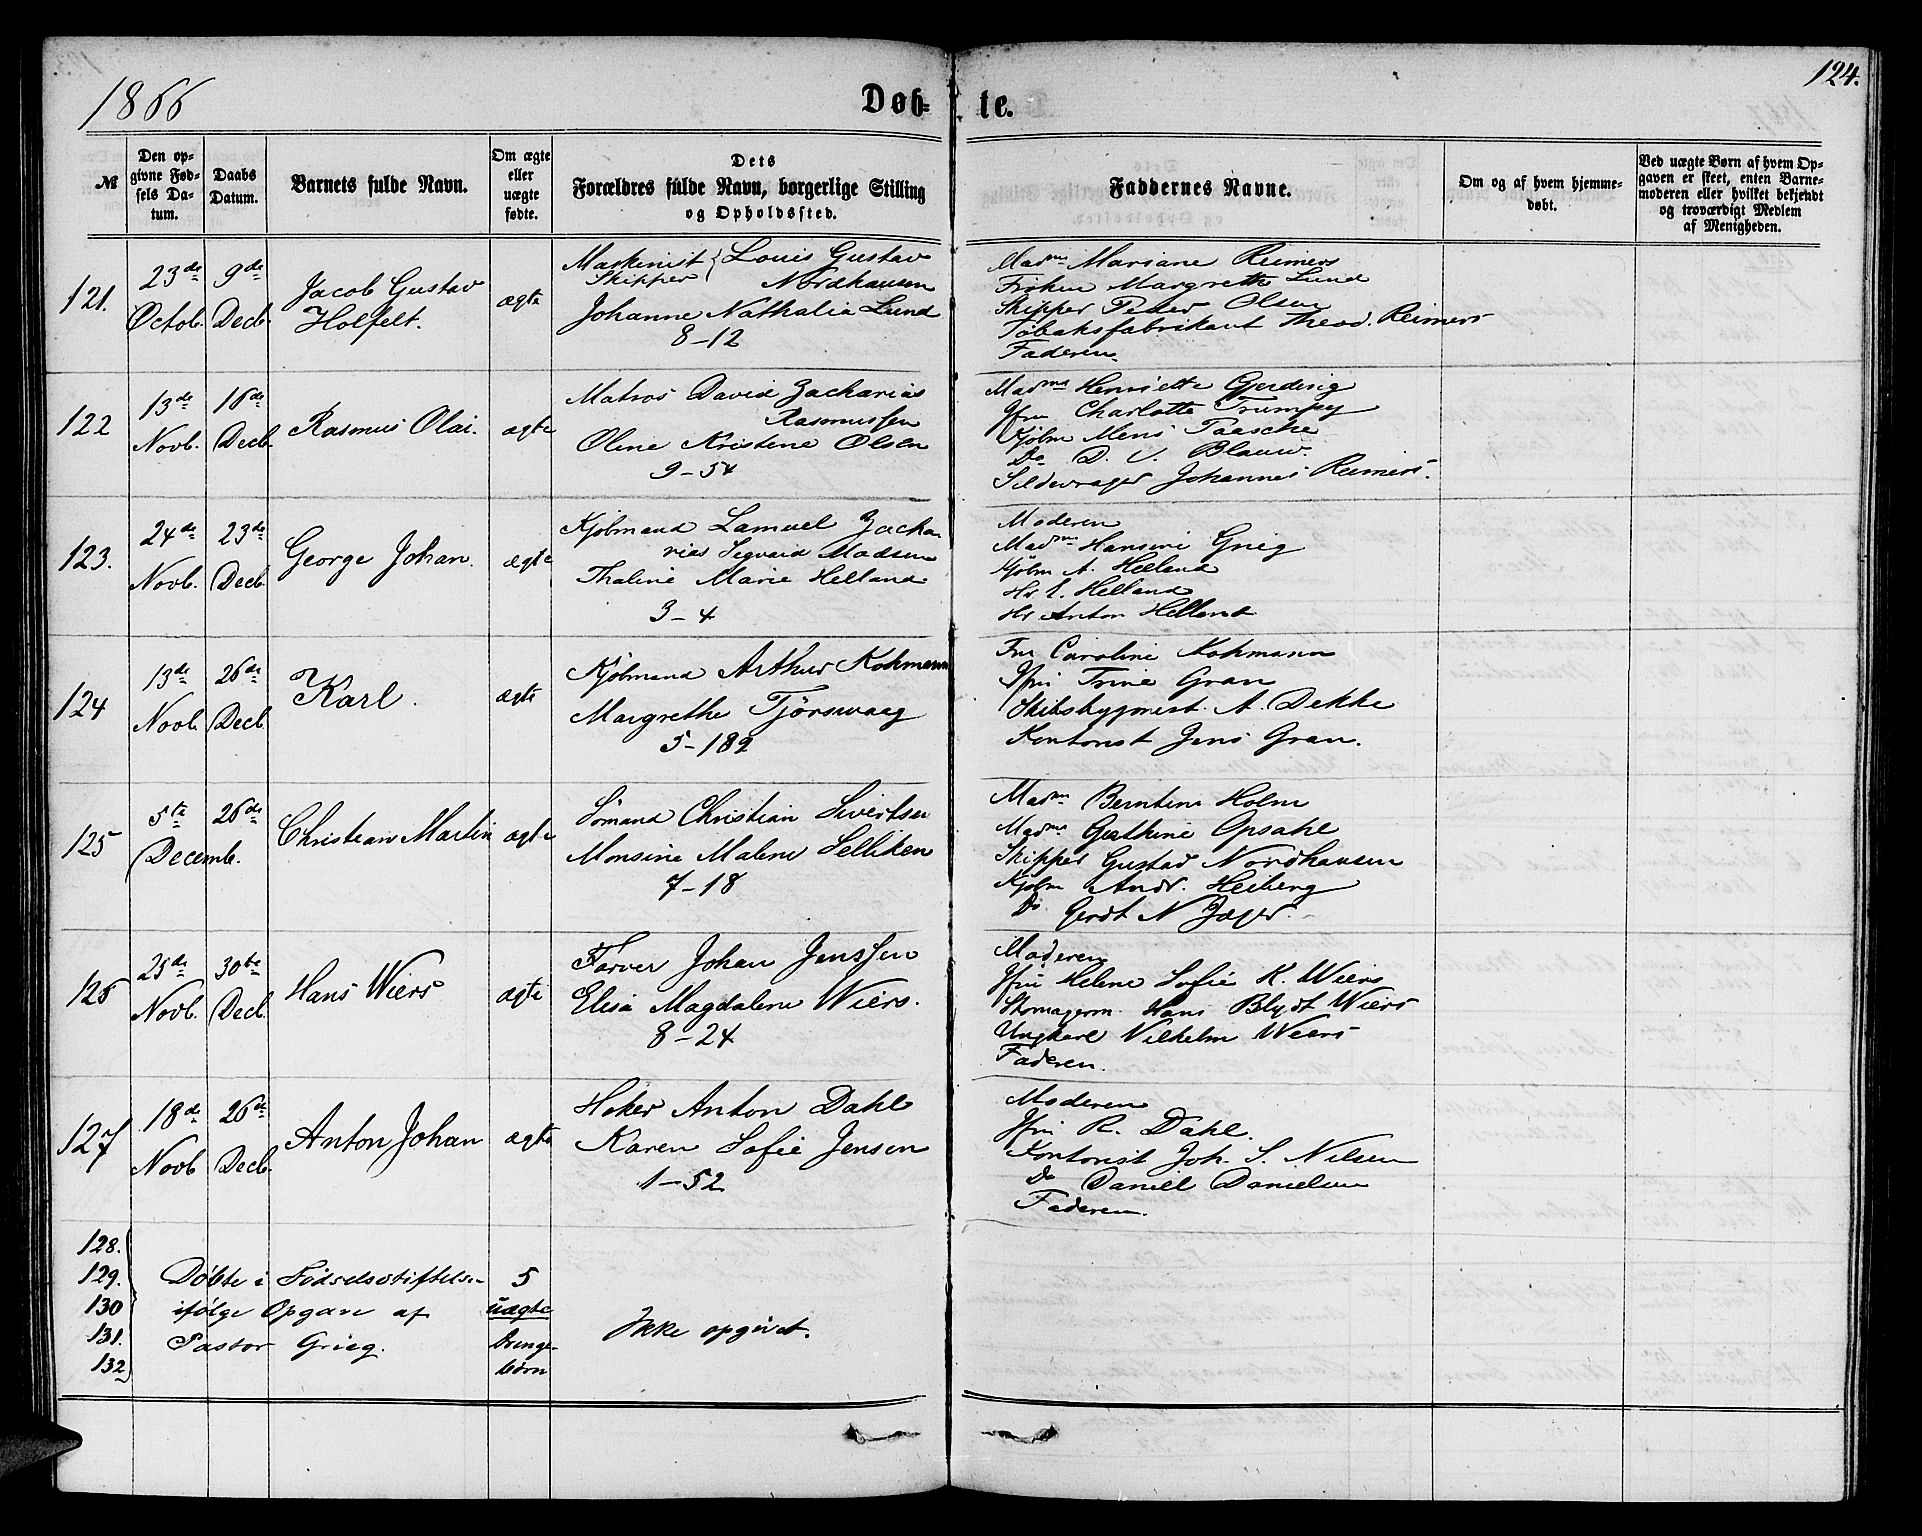 1866
Døb- te.
124.
№
Den op-
givne Fød-
sels Da-
tum.
Daabs
Datum.
Barnets fulde Navn.
Om ægte
eller
uægte
fødte.
Dets
Forældres fulde Navn, borgerlige Stilling
og Opholdssted.
Faddernes Navne.
Om og af hvem hjemme-
døbt.
Ved uægte Børn af hvem Op-
gaven er skeet, enten Barne-
moderen eller hvilket bekjendt
og troværdigt Medlem
af Menigheden.
121.
23de
Octob.
9de
Decb.
Jacob Gustav
Holfelt.
ægte
Maskinist Louis Gustav
Skipper Nordhausen
Johanne Nathalia Lund
8-12
Madme Mariane Reimers
Frøken Margrethe Lund
Skipper Peder Olsen
Tobaksfabrikant Theod. Reimers
Faderen.
122
13de
Novb.
16de
Decb.
Rasmus Olai.
ægte
Matros David Zacharias
Rasmussen
Oline Kristine Olsen
9-54
Madme Henriette Gjerding
Jfru Charlotte Trumpy
Kjøbm Mens Paasche
Do D. C. Blauw.
Sildevrager Johannes Reimers.
123.
24de
Novb.
23de
Decb.
George Johan.
ægte
Kjøbmand Lamuel Zacha
rias Segvard Madsen
Thaline Marie Helland
3-4
Moderen
Madme Hansine Grieg
Kjøbm A. Helland
Hr. I. Helland
Hr Anton Helland
124
13de
Novb.
26de
Decb.
Karl.
ægte
Kjøbmand Arthur Kohmann
Margrethe Tjørswaag
5-189
Fru Caroline Kohmann
Jfru Trine Gran
Skibsbygmest. A. Dekke
Kontorist Jens Gran.
125
5te
26de
Decemb.
Christian Martin
ægte
Sømand Christian Sivertsen
Monsine Malene Selliken
7-18
Madme Berntine Holm
Madme Gjerthine Opsahl
Skipper Gustav Nordhausen
Kjøbm Andr. Heiberg
Do Gerdt N Jæger.
126
25de
Novb.
30te
Decb.
Hans Wiers
ægte
Farver Johan Janssen
Elisa Magdalene Wiers.
8-24
Moderen
Jfru Helene Sofie K. Wiers
Skomagerm. Hans Blydt Wiers
Ungkarl Vilhelm Wiers
Faderen.
127
18de
Novb
26de
Decb.
Anton Johan
ægte
Høker Anton Dahl
Karen Sofie Jensen
1-52
Moderen
Jfru R. Dahl.
Kontorist Joh. S. Nilsen
Do Daniel Danielsen
Faderen.
128.
129.
130
131.
132
Døbte i Fødselsstiftelse-
ifølge Opgave af
Pastor Grieg.
5
uægte
Drenge-
børn
Ikke opgivet.